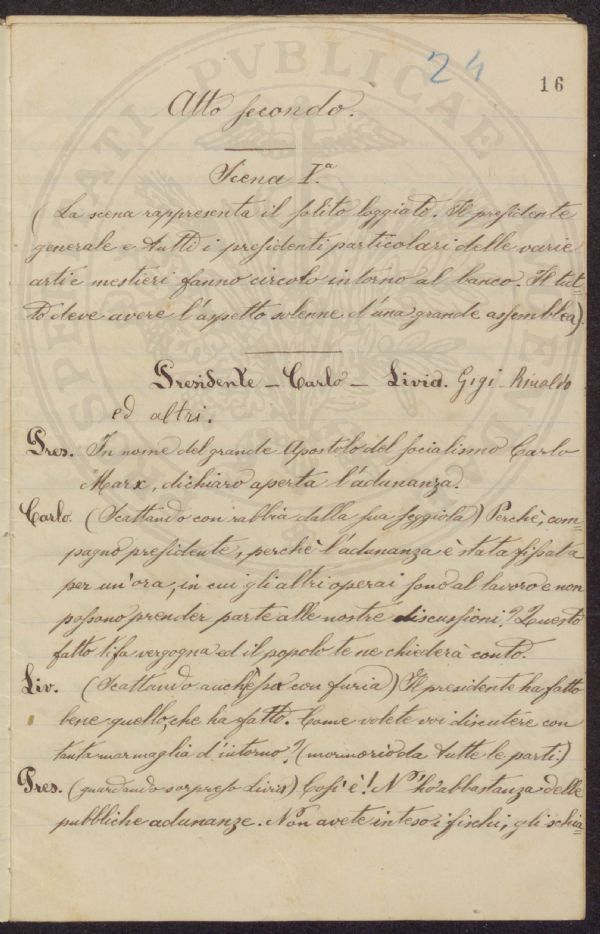 24
16
Atto secondo.
Scena I.a
(La scena rappresenta il solito loggiato. Il presidente
generale e tutti i presidenti particolari delle varie
arti e mestieri fanno circolo intorno al banco. Il tut-
to deve avere l'aspetto solenne d'una grande assemblea).
Presidente - Carlo - Livio. Gigi - Rinaldo
ed altri.
Pres. In nome del grande Apostolo del socialismo Carlo
Marx, dichiaro aperta l'adunanza.
Carlo. (Scattando con rabbia dalla sua seggiola) Perchè, com-
pagno presidente, perchè l'adunanza è stata fissata
per un'ora, in cui gli altri operai sono al lavoro e non
possono prender parte alle nostre discussioni? Questo
fatto ti fa vergogna ed il popolo te ne chiederà conto.
Liv. (Scattando anch'esso con furia) Il presidente ha fatto
bene quello, che ha fatto. Come volete voi discutere con
tanta marmaglia d'intorno? (mormorio da tutte le parti.)
Pres. (guardando sorpreso Livio) Così è! N'ho abbastanza delle
pubbliche adunanze. Non avete inteso i fischi, gli schia-